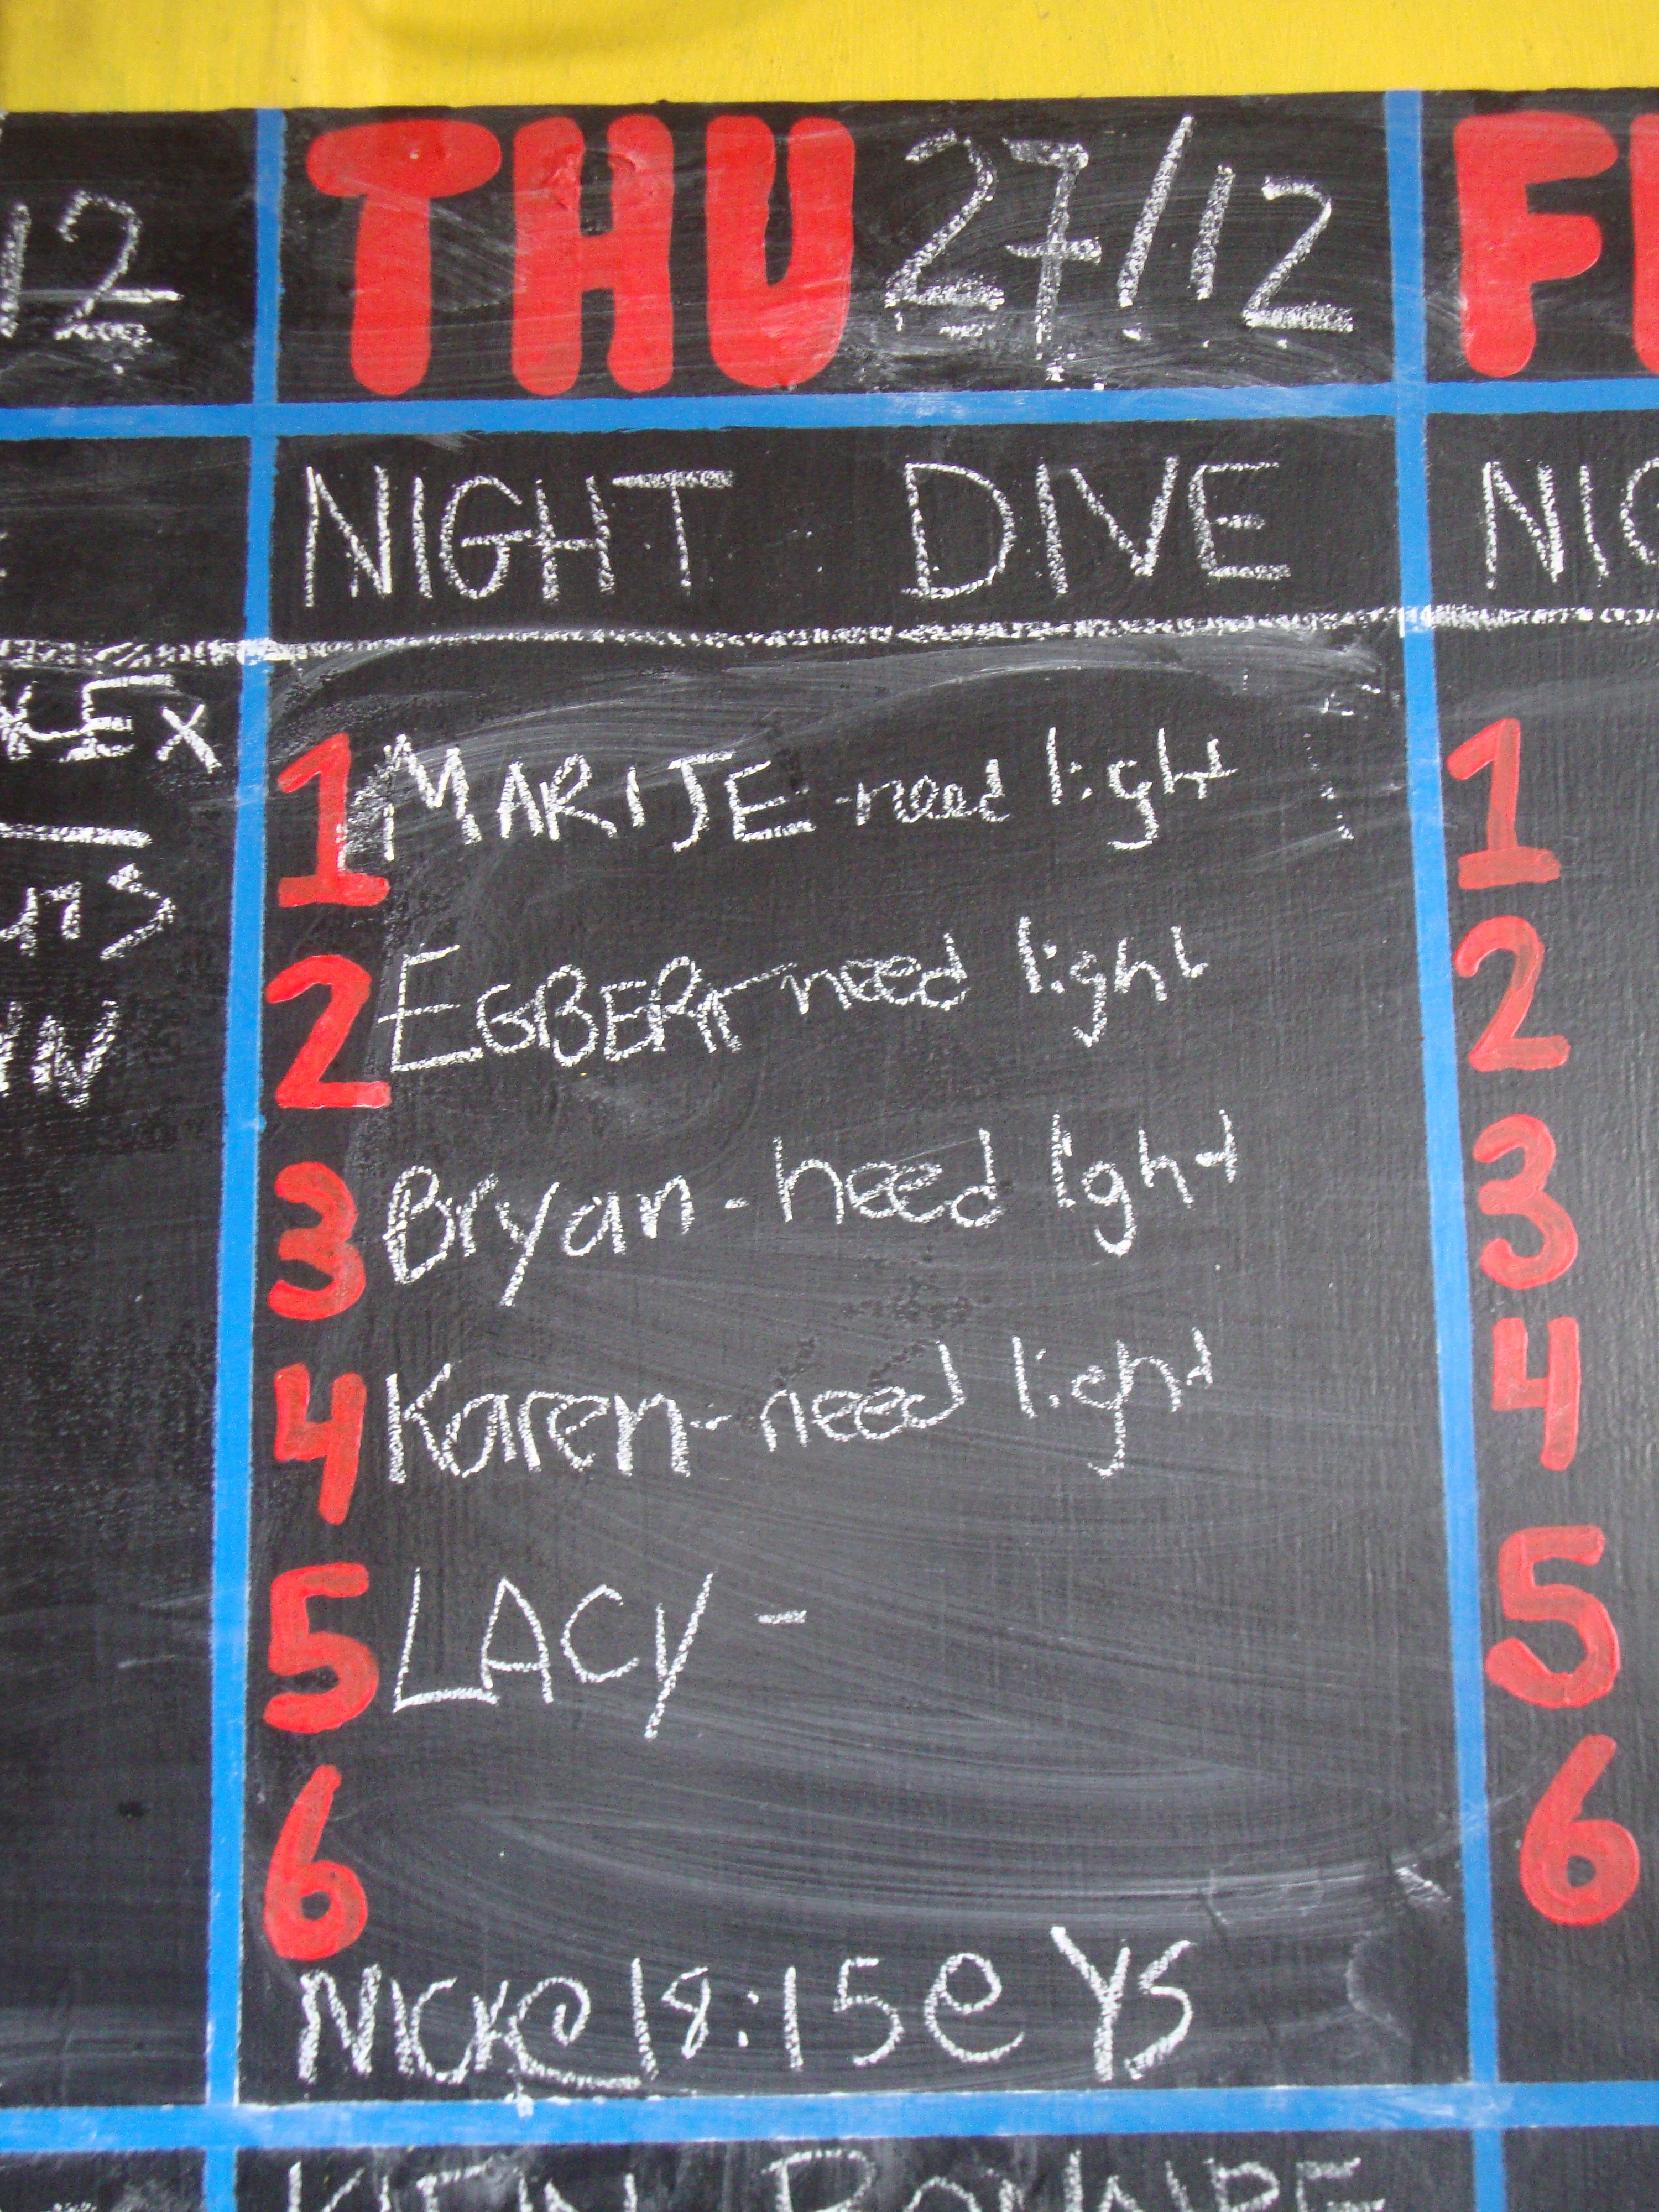 12
THU 27/12
F
NIGHT DIVE
1 MARIJE - need light
2 EGBERT - need light
3 Bryan - need light
4 Karen - need light
5 LACY -
6
NICK @ 18:15 @ YS
1
2
3
4
5
6